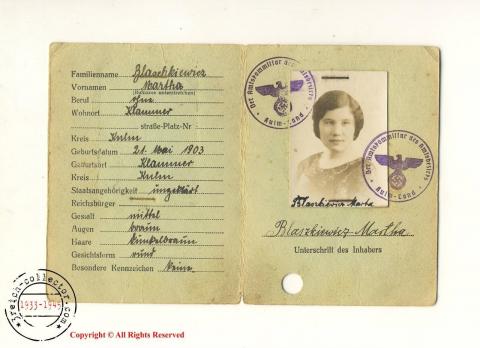 Familienname Blaschkiewicz
Vornamen Martha
(Rufname unterstreichen)
Beruf ohne
Wohnort Klammer
straße-Platz-Nr
Kreis Kulm
Geburtsdatum 21. Mai 1903
Geburtsort Klammer
Kreis Kulm
Staatsangehörigkeit ungeklärt
Reichsbürger
Gestalt mittel
Augen braun
Haare dunkelbraun
Gesichtsform rund
Besondere Kennzeichen keine.
Der Amtskommissar des Amtsbezirks
Kulm-Land
Der Amtskommissar des Amtsbezirks
Kulm-Land
Blaszkiewicz Marta
Blaszkiewicz Martha.
Unterschrift des Inhabers
3reich-collector.com
1933-1945
Copyright © All Rights Reserved